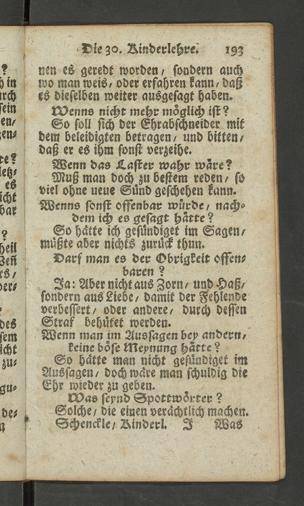 Die 30. Kinderlehre. 193
nen es geredt worden / sondern auch
wo man weis / oder erfahren kann / daß
es dieselben weiter ausgesagt haben.
Wenns nicht mehr möglich ist?
So soll sich der Ehrabschneider mit
dem beleidigten betragen / und bitten /
daß er es ihm sonst verzeihe.
Wenn das Laster wahr wäre?
Muß man doch zu bestem reden / so
viel ohne neue Sünd geschehen kann.
Wenns sonst offenbar würde / nach-
dem ich es gesagt hätte?
So hätte ich gesündiget im Sagen /
müßte aber nichts zurück thun.
Darf man es der Obrigkeit offen-
baren?
Ja: Aber nicht aus Zorn / und Haß /
sondern aus Liebe / damit der Fehlende
verbessert / oder andere / durch dessen
Straf behütet werden.
Wenn man im Aussagen bey andern /
keine böse Meynung hätte?
So hätte man nicht gesündiget im
Aussagen / doch wäre man schuldig die
Ehr wieder zu geben.
Was seynd Spottwörter?
Solche / die einen verächtlich machen.
Schenckle / Kinderl. J Was